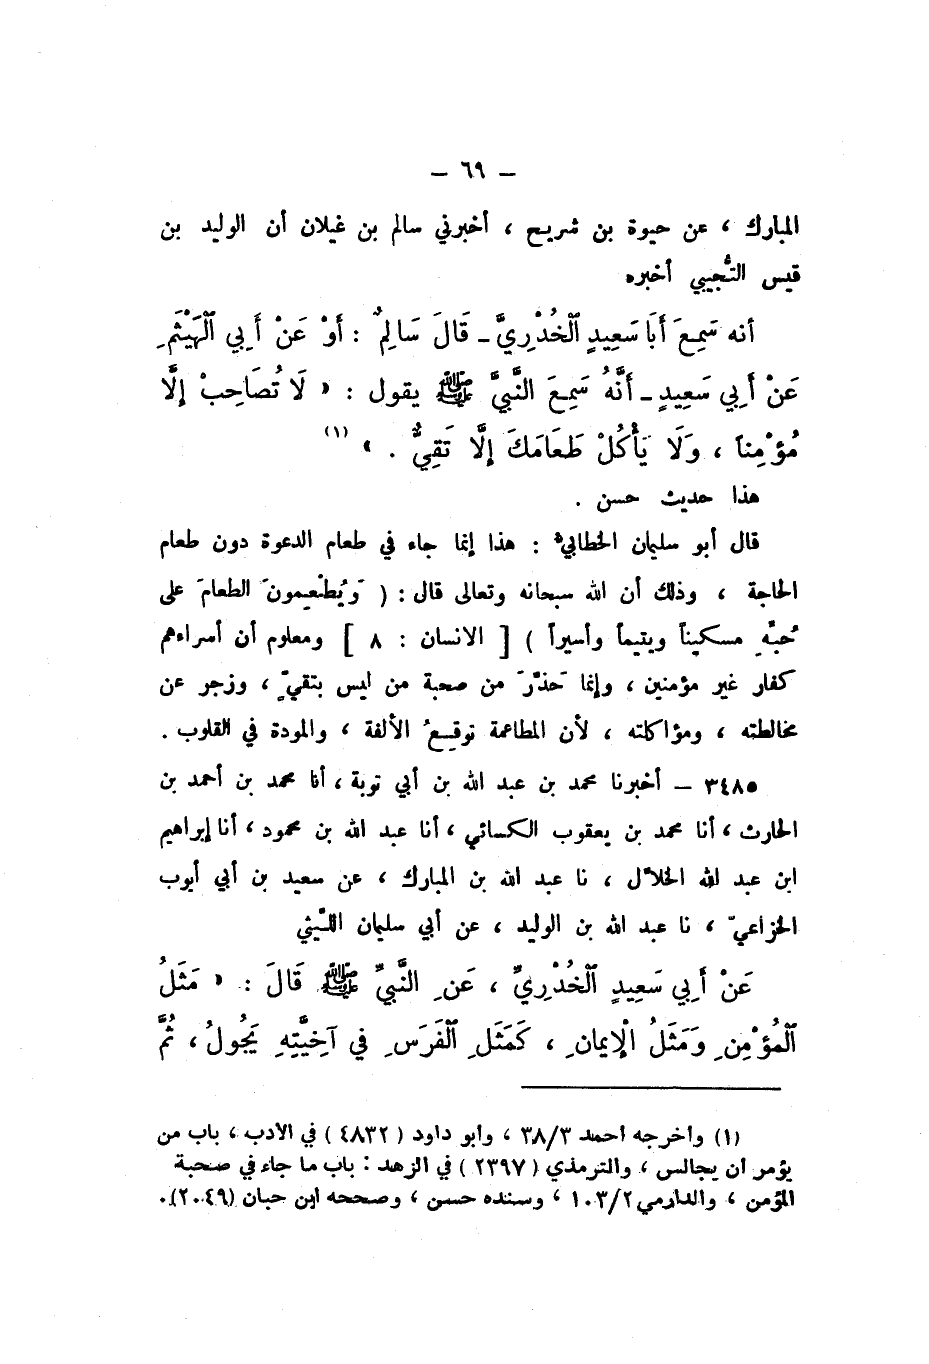 – ٦٩ –
المبارك ، عن حيوة بن شريح ، أخبرني سالم بن غيلان أن الوليد بن
قيس التُّجيبي أخبره
أنه سَمِعَ أَبَا سَعِيدٍ الْخُدْرِيَّ ـ قَالَ سَالِمٌ : أَوْ عَنْ أَبِي الْهَيْثَمِ
عَنْ أَبِي سَعِيدٍ ـ أَنَّهُ سَمِعَ النَّبِيَّ ﷺ يقول : « لَا تُصَاحِبْ إِلَّا
مُؤْمِناً ، وَلَا يَأْكُلْ طَعَامَكَ إِلَّا تَقِيٌّ . » (١)
هذا حديث حسن .
قال أبو سليمان الخطابيُّ : هذا إنما جاء في طعام الدعوة دون طعام
الحاجة ، وذلك أن الله سبحانه وتعالى قال : ( وَيُطْعِمونَ الطعامَ على
حُبِّهِ مسكيناً ويتيماً وأسيراً ) [ الانسان : ٨ ] ومعلوم أن أسراءهم
كفار غير مؤمنين ، وإنما حَذَّرَ من صحبة من ليس بتقيٍّ ، وزجر عن
مخالطته ، ومؤاكلته ، لأن المطاعمة توقعُ الألفة ، والمودة في القلوب .
٣٤٨٥ – أخبرنا محمد بن عبد الله بن أبي توبة ، أنا محمد بن أحمد بن
الحارث ، أنا محمد بن يعقوب الكسائي ، أنا عبد الله بن محمود ، أنا إبراهيم
ابن عبد الله الخلاّل ، نا عبد الله بن المبارك ، عن سعيد بن أبي أيوب
الخزاعيّ ، نا عبد الله بن الوليد ، عن أبي سليمان الليثي
عَنْ أَبِي سَعِيدٍ الْخُدْرِيِّ ، عَنِ النَّبِيِّ ﷺ قَالَ : « مَثَلُ
الْمُؤْمِنِ وَمَثَلُ الْإِيمَانِ ، كَمَثَلِ الْفَرَسِ فِي آخِيَّتِهِ يَجُولُ ، ثُمَّ
(١) وأخرجه أحمد ٣٨/٣ ، وأبو داود ( ٤٨٣٢ ) في الأدب ، باب من
يؤمر ان يجالس ، والترمذي ( ٢٣٩٧ ) في الزهد : باب ما جاء في صحبة
المؤمن ، والدارمي ١٠٣/٢ ، وسنده حسن ، وصححه ابن حبان (٢٠٤٩).